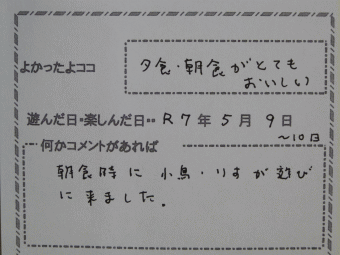 よかったよココ
夕食・朝食がとても
おいしい
遊んだ日・楽しんだ日・・ R7年5月9日
～10日
何かコメントがあれば
朝食時に 小鳥・りすが遊び
に来ました。